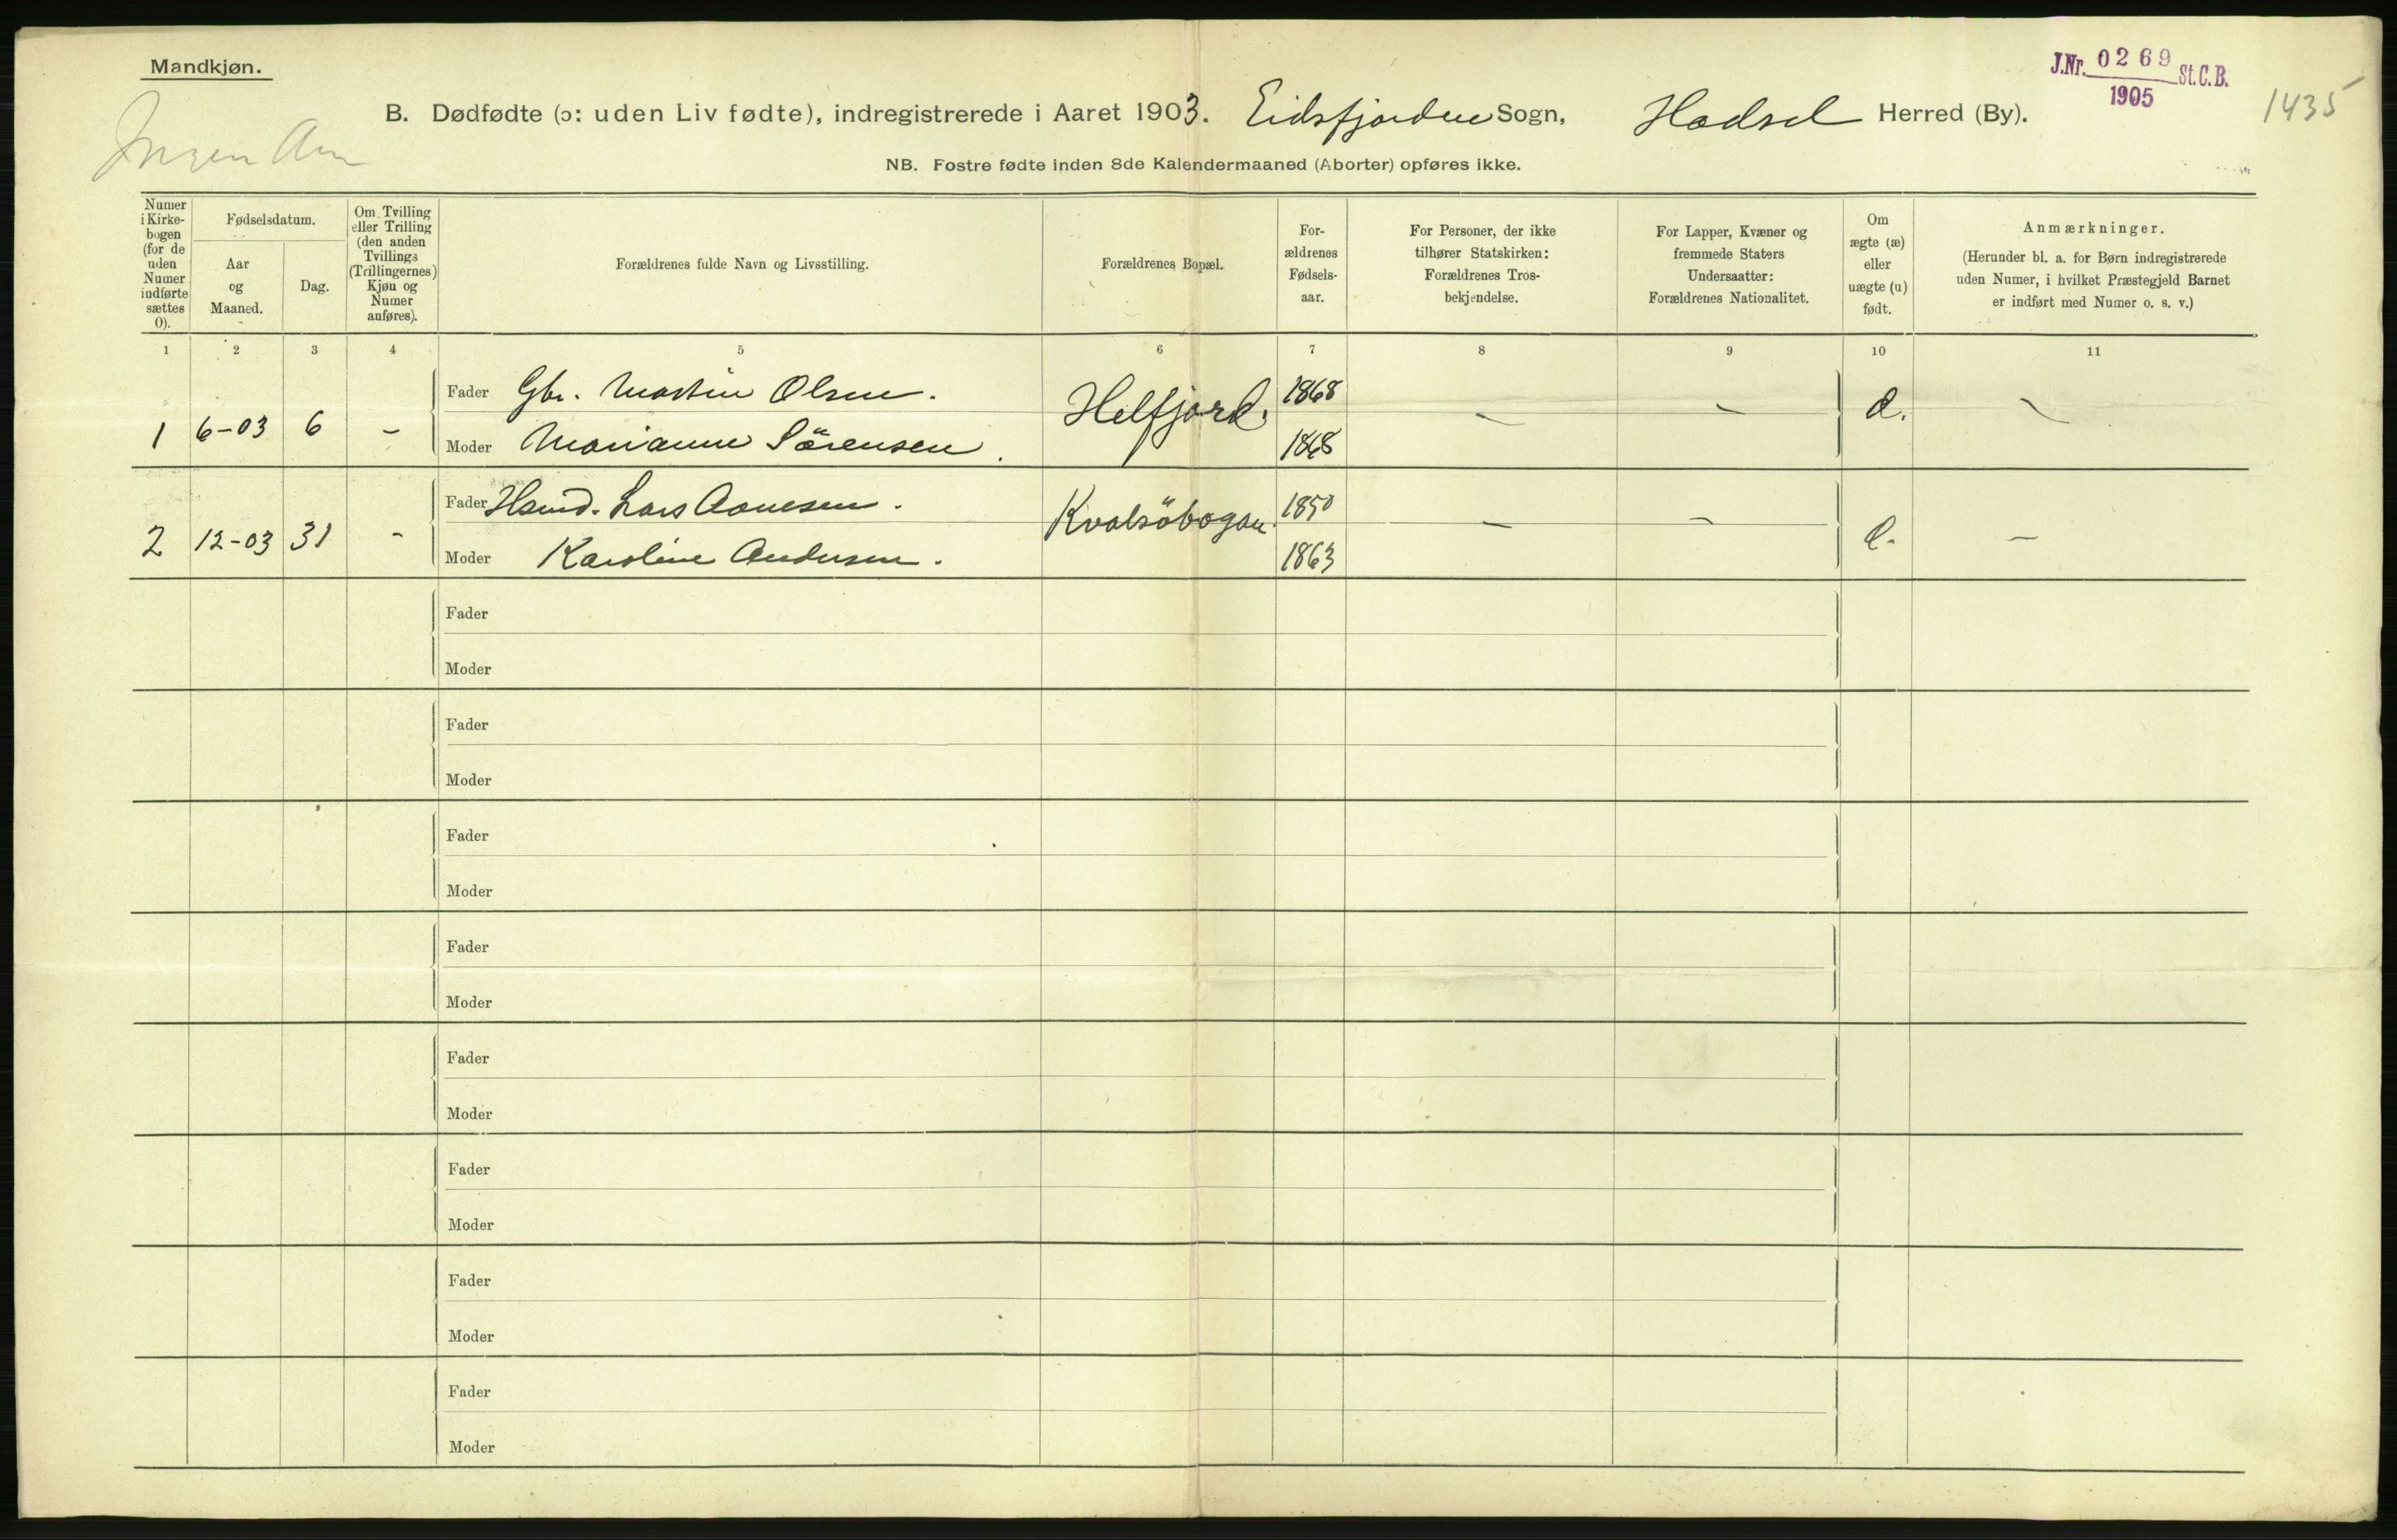 Mandkjøn.
J.Nr. 0269 St.C.B.
1905
1435
B. Dødfødte (ɔ: uden Liv fødte), indregistrerede i Aaret 1903. Eidsfjorden Sogn, Hadsel Herred (By).
Ingen Anm
NB. Fostre fødte inden 8de Kalendermaaned (Aborter) opføres ikke.
Numer i Kirke-bogen (for de uden Numer indførte sættes 0).
Fødselsdatum.
Aar og Maaned.
Dag.
Om Tvilling eller Trilling (den anden Tvillings (Trillingernes) Kjøn og Numer anføres).
Forældrenes fulde Navn og Livsstilling.
Forældrenes Bopæl.
For-ældrenes Fødsels-aar.
For Personer, der ikke tilhører Statskirken: Forældrenes Tros-bekjendelse.
For Lapper, Kvæner og fremmede Staters Undersaatter: Forældrenes Nationalitet.
Om ægte (æ) eller uægte (u) født.
Anmærkninger.
(Herunder bl. a. for Børn indregistrerede uden Numer, i hvilket Præstegjeld Barnet er indført med Numer o. s. v.)
1 2 3 4 5 6 7 8 9 10 11
Fader Gbr. Martin Olsen. Helfjord. 1868
1 6-03 6 - - - -
Moder Marianne Sörensen. 1868
Fader Hsmd. Lars Aanesen. Kvalsöbogan. 1850
2 12-03 31 - - - -
Moder Karoline Andersen. 1863
Fader
Moder
Fader
Moder
Fader
Moder
Fader
Moder
Fader
Moder
Fader
Moder
Fader
Moder
Fader
Moder